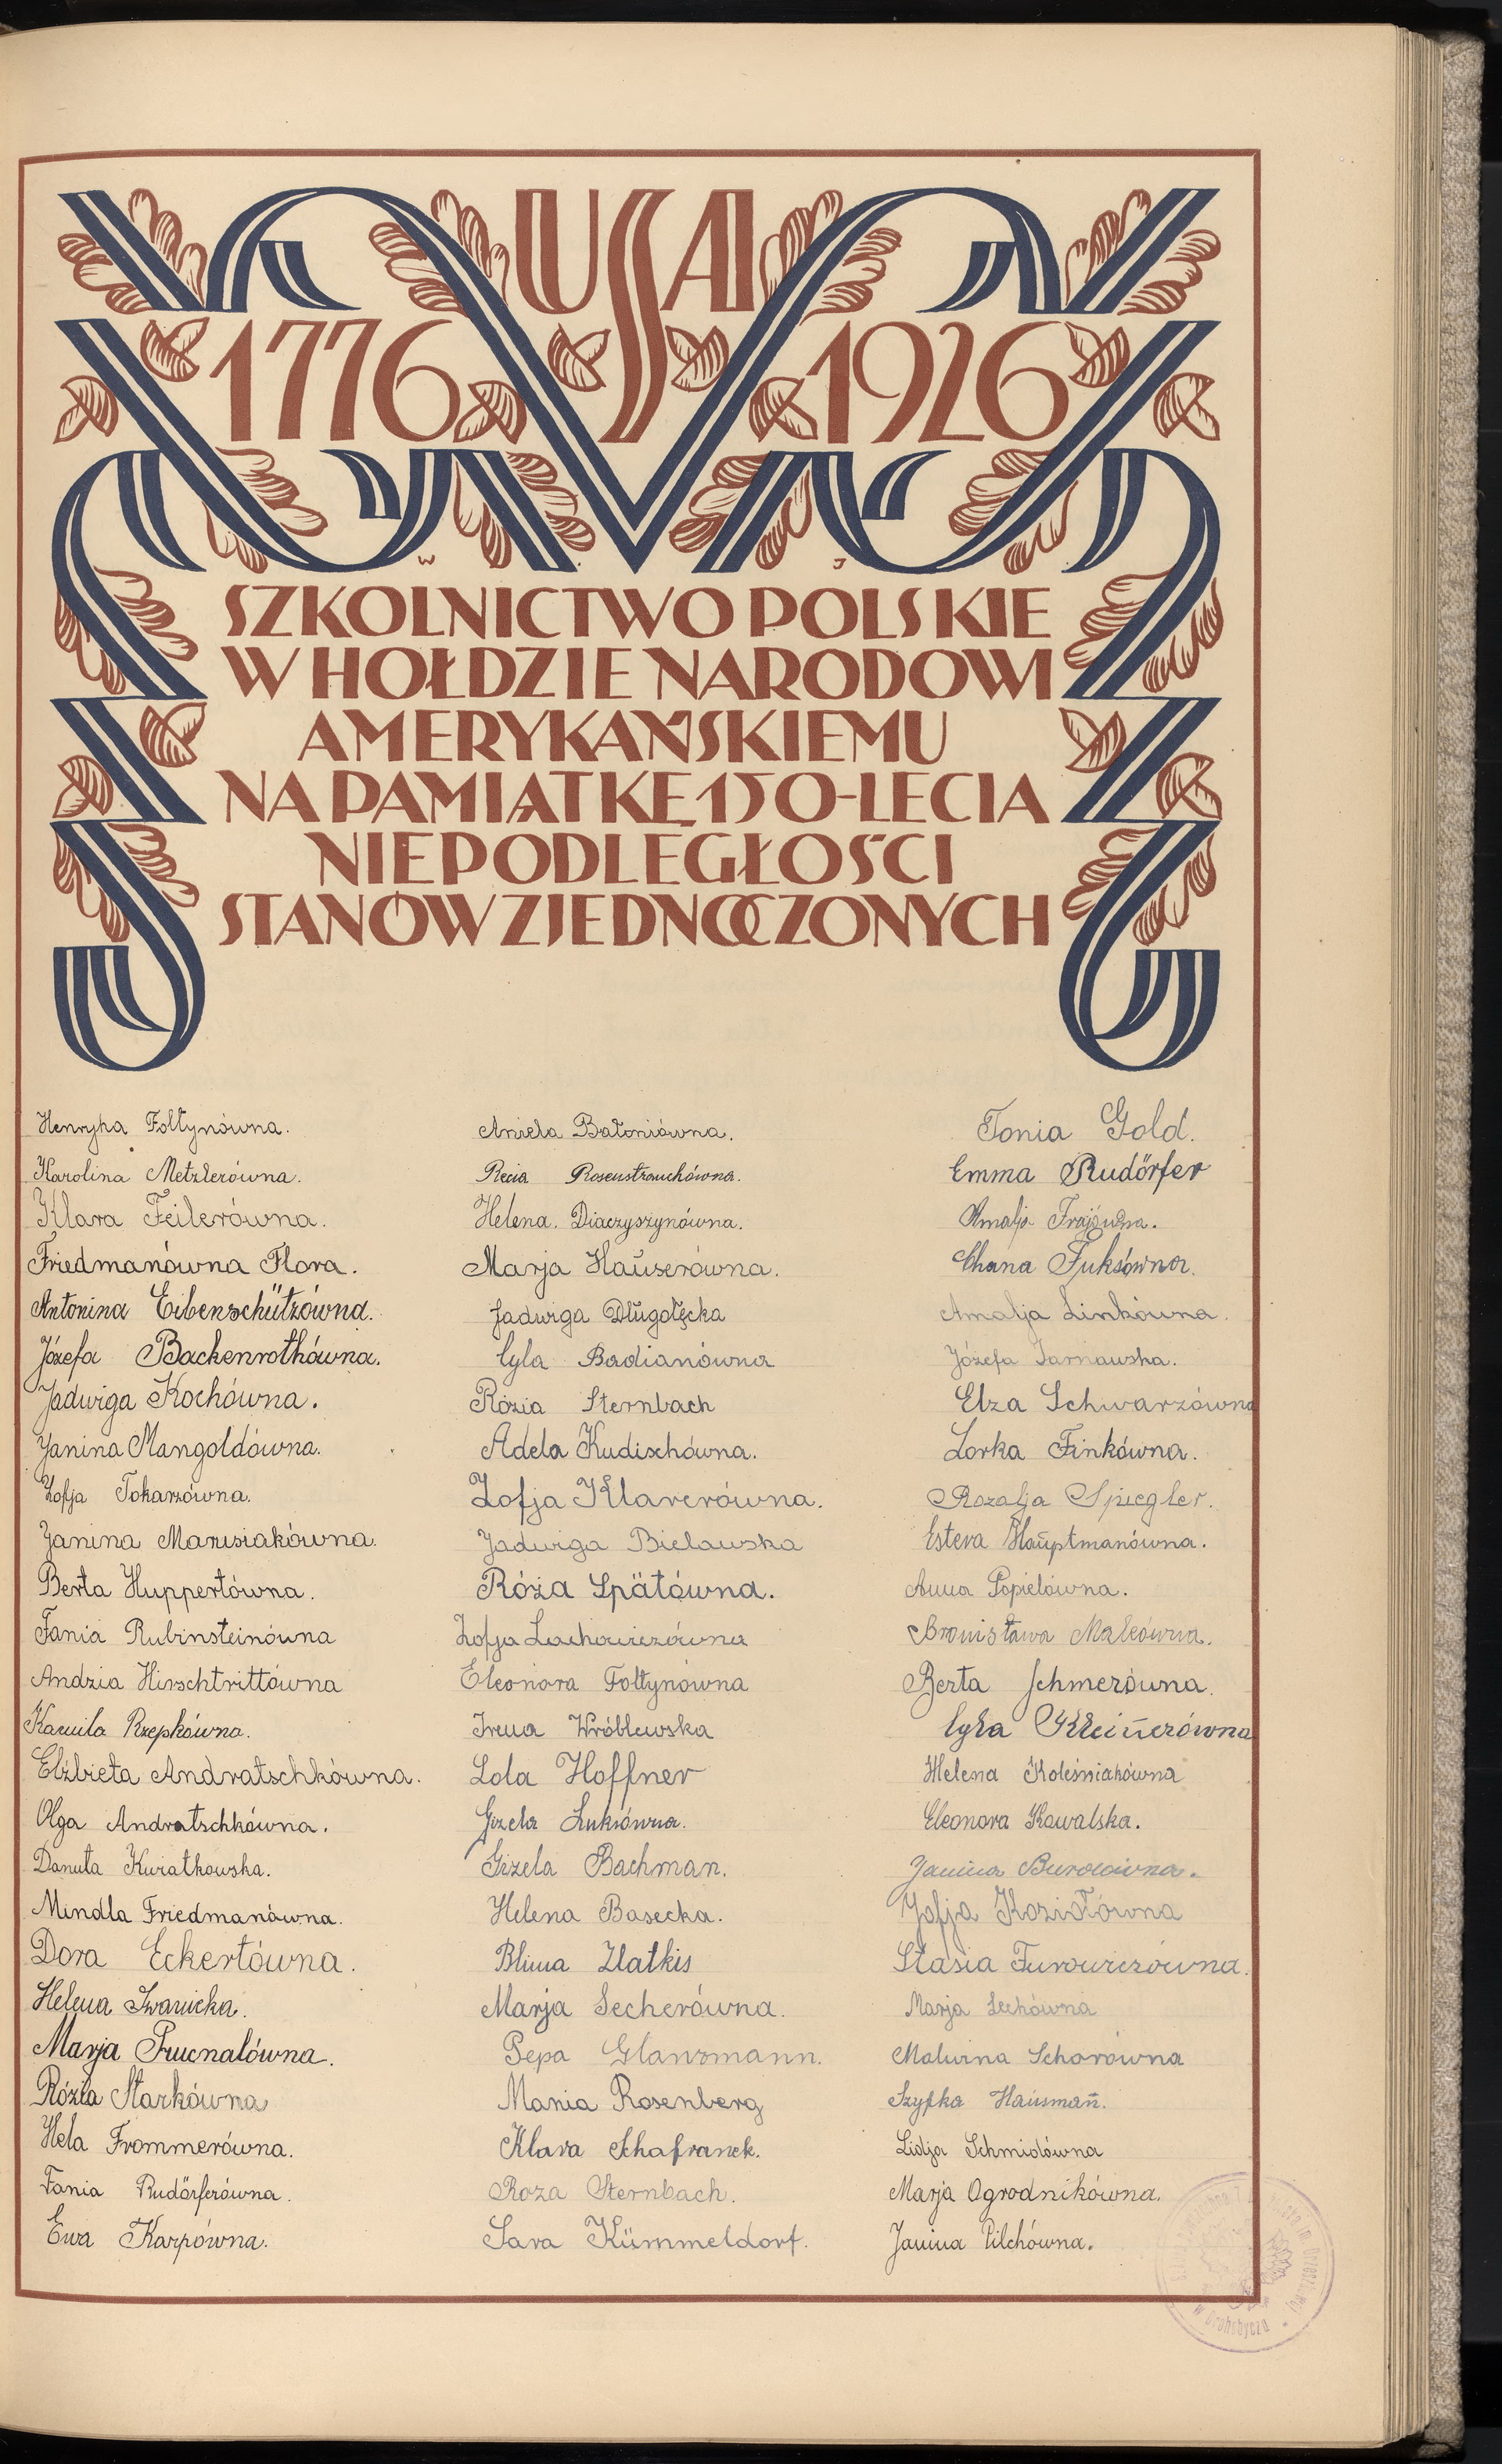 USA
1776 1926
W J
SZKOLNICTWO POLSKIE
W HOŁDZIE NARODOWI
AMERYKAŃSKIEMU
NA PAMIĄTKĘ 150-LECIA
NIEPODLEGŁOŚCI
STANÓW ZJEDNOCZONYCH
Henryka Foltynówna.
Karolina Metzlerówna.
Klara Feilerówna.
Friedmanówna Flora.
Antonina Eibenschützówna.
Józefa Backenrothówna.
Jadwiga Kochówna.
Janina Mangoldówna.
Zofja Tokarzówna.
Janina Marusiakówna.
Berta Huppertówna.
Fania Rubinsteinówna
Andzia Hirschtrittówna
Kamila Rzepkówna.
Elżbieta Andratschkówna.
Olga Andratschkówna.
Danuta Kwiatkowska.
Mindla Friedmanówna.
Dora Eckertówna.
Helena Iwanicka.
Marja Frucnalówna.
Rózia Starkówna
Hela Frommerówna.
Fania Rudörferówna.
Ewa Karpówna.
Aniela Batoniówna.
Recia Rosenstrauchówna.
Helena. Diaczyszynówna.
Marja Hauserówna.
Jadwiga Długołęcka
Cyla Badianówna
Rózia Sternbach
Adela Kudischówna.
Zofja Klarerówna.
Jadwiga Bielawska
Róża Spätówna.
Zofja Lachowiczówna
Eleonora Foltynówna
Irena Wróblewska
Lola Hoffner
Gizela Lukiówna.
Gizela Bachman.
Helena Basecka.
Blima Zlatkis
Marja Secherówna.
Pepa Glanzmann.
Mania Rosenberg
Klara Schafranek.
Roza Sternbach.
Sara Kümmeldorf.
Tonia Gold.
Emma Rudörfer
Amalja Frajówna.
Chana Fuksówna.
Amalja Linkówna.
Józefa Tarnawska.
Elza Schwarzówna
Lorka Finkówna.
Rozalja Spiegler.
Estera Hauptmanówna.
Anna Popielówna.
Bronisława Malcówna.
Berta Schmerówna.
Cyla Kleinerówna
Helena Koleśniakówna
Eleonora Kowalska.
Janina
Zofja Koziołówna
Stasia Turowiczówna.
Marja Lechówna
Malwina Schorówna
Szyfka Hausman.
Lidja Schmidówna
Marja Ogrodnikówna.
Janina Pilchówna.
w Drohobyczu